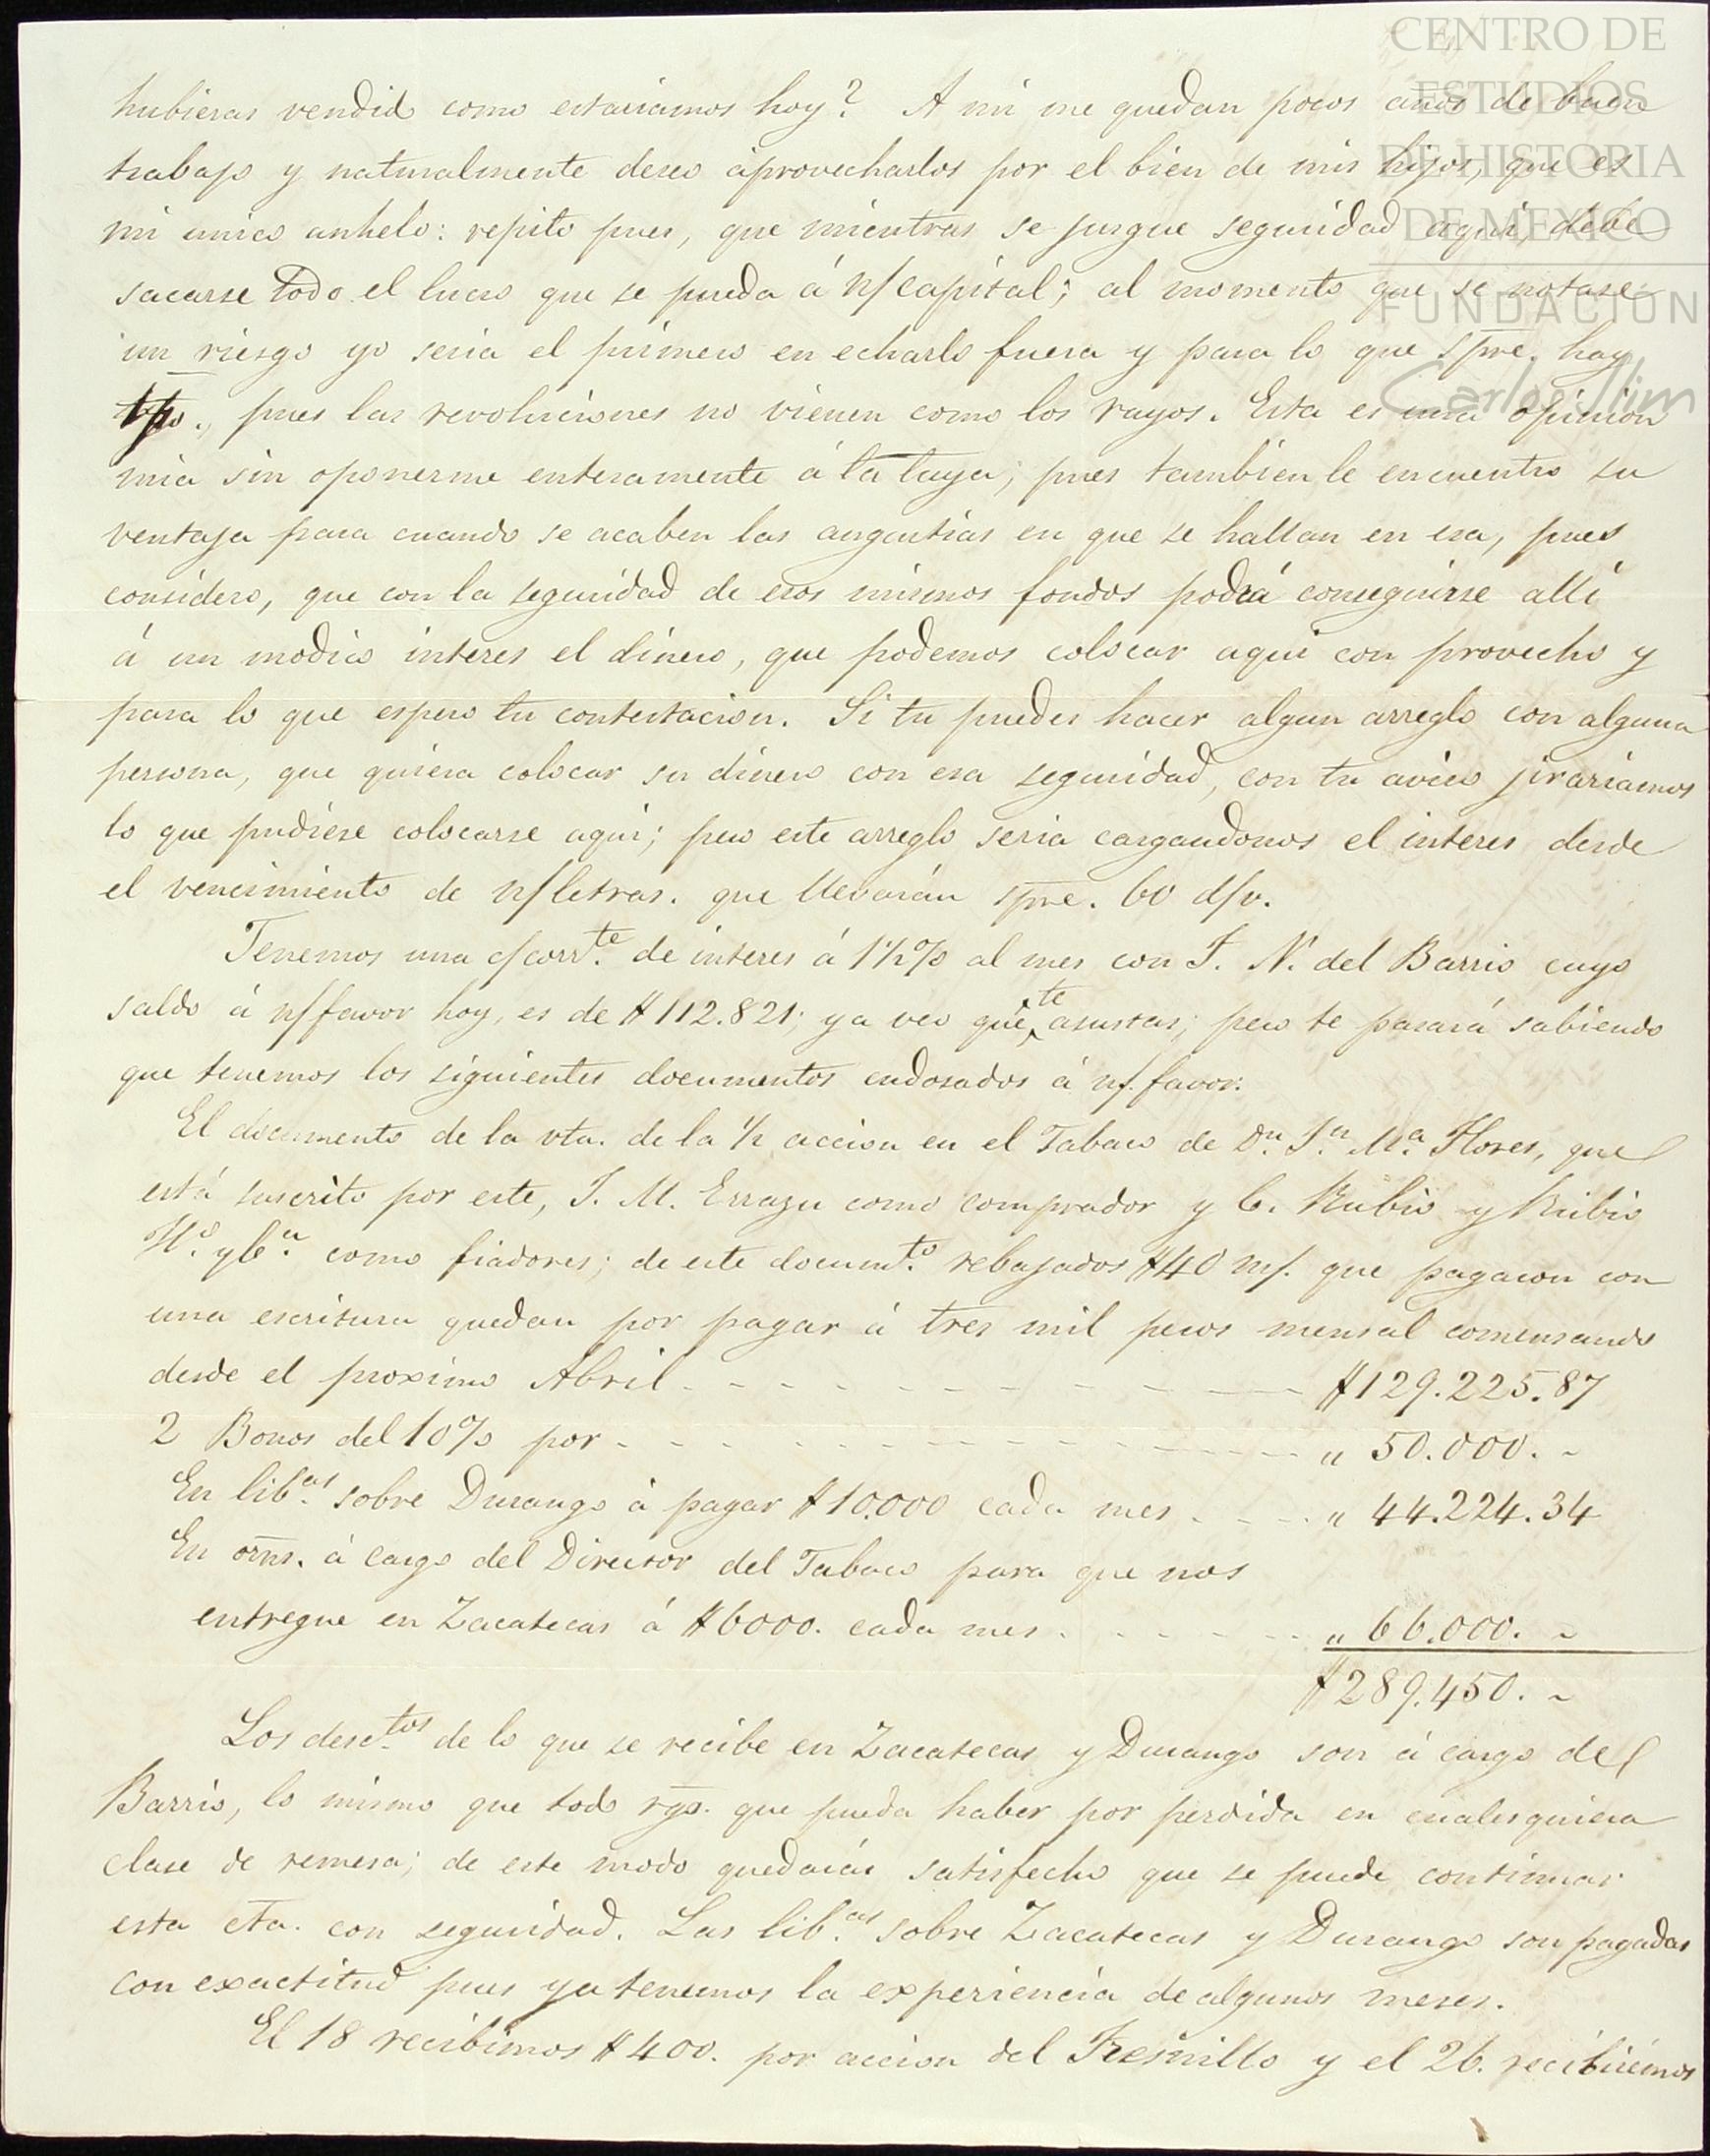 CENTRO DE
ESTUDIOS
DE HISTORIA
DE MEXICO
FUNDACIÓN
Carlos Slim
hubieras vendido como estariamos hoy? A mi me quedan pocos años de buen
trabajo y naturalmente deseo aprovecharlos por el bien de mis hijos, que es
mi unico anhelo: repito pues, que mientras se jusgue seguridad aqui, debe
sacarse todo el lucro que se pueda á n/capital; al momento que se notase
un riesgo yo seria el primero en echarlo fuera y para lo que spre. hay
tpo., pues las revoluciones no vienen como los rayos. Esta es una opinion
mia sin oponerme enteramente á la tuya; pues tambien le encuentro su
ventaja para cuando se acaben las angustias en que se hallan en esa, pues
considero, que con la seguridad de esos mismos fondos podrá conseguirse allí
á un modico interes el dinero, que podemos colocar aqui con provecho y
para lo que espero tu contestacion. Si tu puedes hacer algun arreglo con alguna
persona, que quiera colocar su dinero con esa seguridad, con tu aviso jirariamos
lo que pudiese colocarse aqui; pero este arreglo seria cargandonos el interes desde
el vencimiento de n/letras. que llevarán spre. 60 d/v.
Tenemos una c/corrte. de interes á 1 1/2 % al mes con F. N. del Barrio cuyo
saldo á n/favor hoy, es de $112.821; ya veo que te asustas; pero te pasará sabiendo
que tenemos los siguientes documentos endosados á n/. favor.
El documento de la vta. de la 1/2 accion en el Tabaco de Dn. Jn. Ma. Flores, que
está suscrito por este, J. M. Errazu como comprador y C. Rubio y Rubio
Ho. y Ca. como fiadores; de este documto. rebajados $40 m/. que pagaron con
una escritura quedan por pagar á tres mil pesos mensal comensando
desde el proximo Abril - - - - - - $129.225.87
2 Bonos del 10% por - - - - - - " 50.000. -
En libas. sobre Durango á pagar $10.000 cada mes - - - " 44.224.34
En orns. á cargo del Director del Tabaco para que nos
entregue en Zacatecas á $6000. cada mes - - - - - " 66.000. -
$289.450. -
Los desctos. de lo que se recibe en Zacatecas y Durango son á cargo del
Barrio, lo mismo que todo rgo. que pueda haber por perdida en cualesquiera
clase de remesa; de este modo quedarás satisfecho que se puede continuar
esta cta. con seguridad. Las libas. sobre Zacatecas y Durango son pagadas
con exactitud pues ya tenemos la experiencia de algunos meses.
El 18 recibimos $400. por accion del Fresnillo y el 26. recibiremos